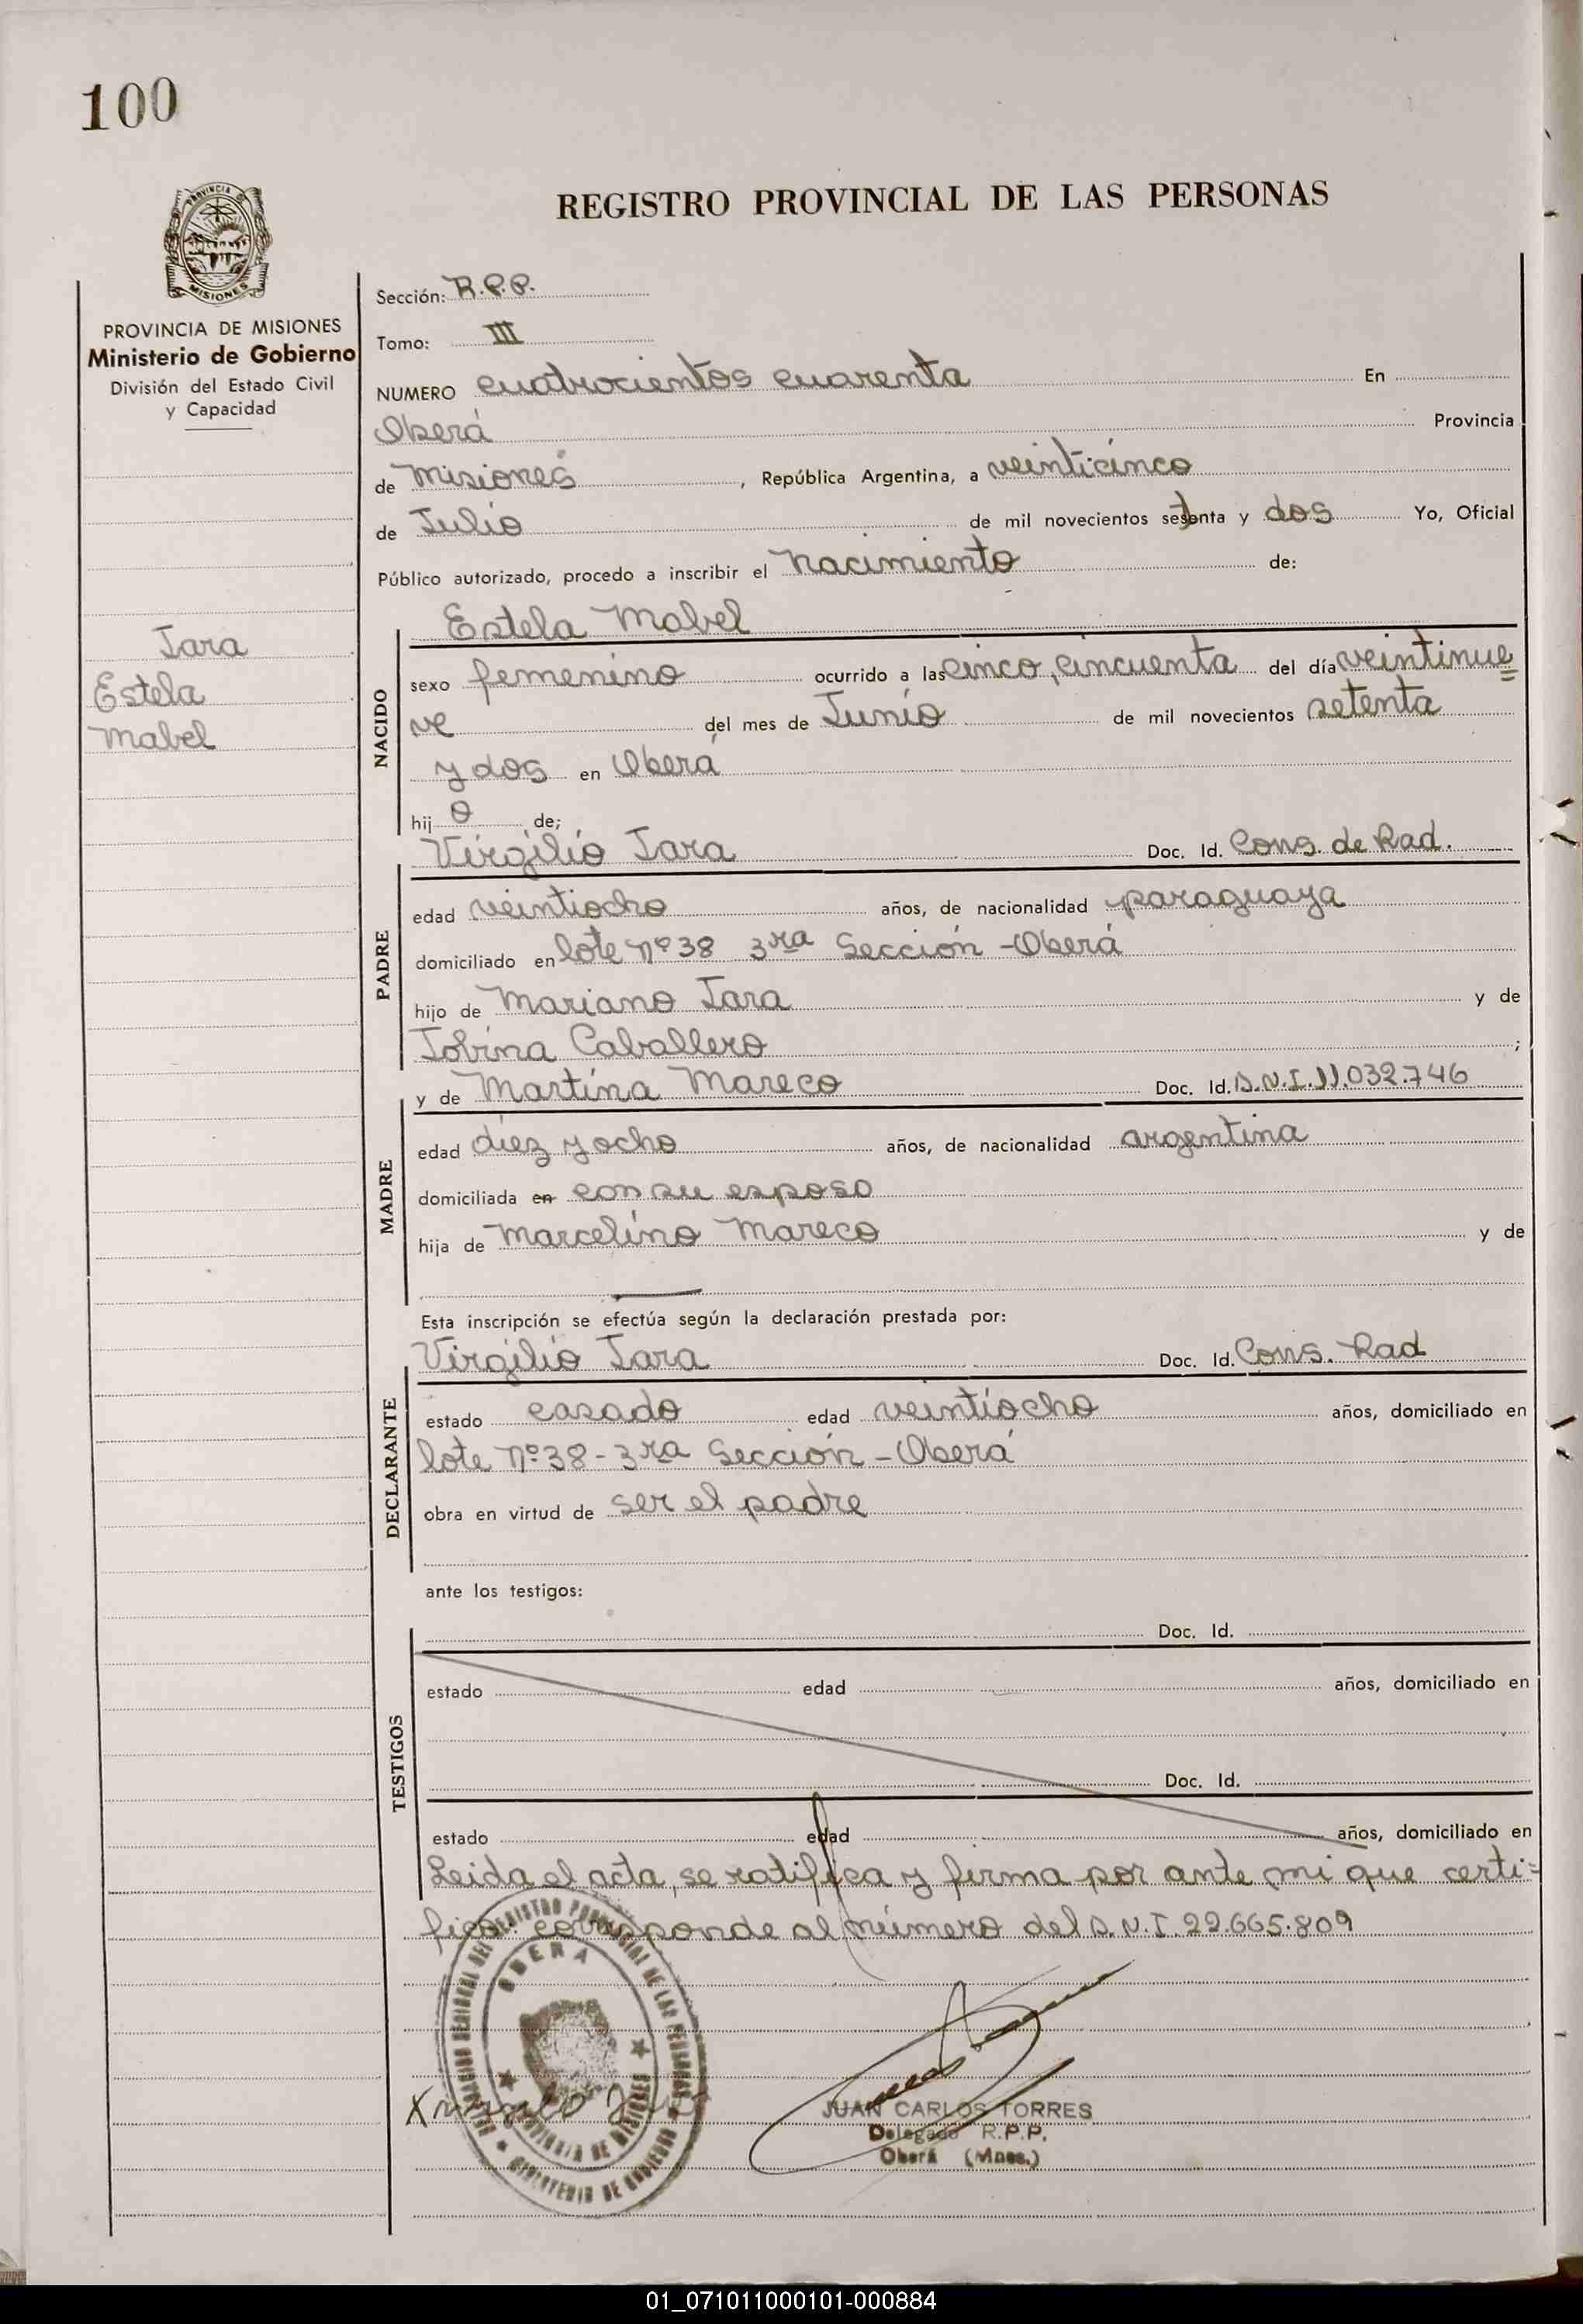 100
REGISTRO PROVINCIAL DE LAS PERSONAS
PROVINCIA
MISIONES
PROVINCIA DE MISIONES
Ministerio de Gobierno
División del Estado Civil
y Capacidad
Jara
Estela
Mabel
Sección: R.P.P.
Tomo: III
NUMERO cuatrocientos cuarenta En
Oberá Provincia
de Misiones, República Argentina, a veinticinco
de Julio de mil novecientos setenta y dos Yo, Oficial
Público autorizado, procedo a inscribir el nacimiento de:
NACIDO
Estela Mabel
sexo femenino ocurrido a las cinco, cincuenta del día veintinue=
ve del mes de Junio de mil novecientos setenta
y dos en Oberá
hij a de;
PADRE
Virgilio Jara Doc. Id. Cons. de Rad.
edad veintiocho años, de nacionalidad paraguaya
domiciliado en lote Nº 38 3ra Sección - Oberá
hijo de Mariano Jara y de
Jovina Caballero ;
MADRE
y de Martina Mareco Doc. Id. D.N.I. 11.032.746
edad diez y ocho años, de nacionalidad argentina
domiciliada en con su esposo
hija de Marcelino Mareco y de
Esta inscripción se efectúa según la declaración prestada por:
DECLARANTE
Virgilio Jara Doc. Id. Cons. Rad
estado casado edad veintiocho años, domiciliado en
lote Nº 38 - 3ra Sección - Oberá
obra en virtud de ser el padre
ante los testigos:
TESTIGOS
Doc. Id.
estado edad años, domiciliado en
Doc. Id.
estado edad años, domiciliado en
Leida el acta, se ratifica y firma por ante mi que certi=
fico: corresponde al número del D.N.I. 22.665.809
OBERA
PROVINCIA DE MISIONES
MINISTERIO DE GOBIERNO
JUAN CARLOS TORRES
Delegado R.P.P.
Oberá (Mnes.)
01_071011000101-000884